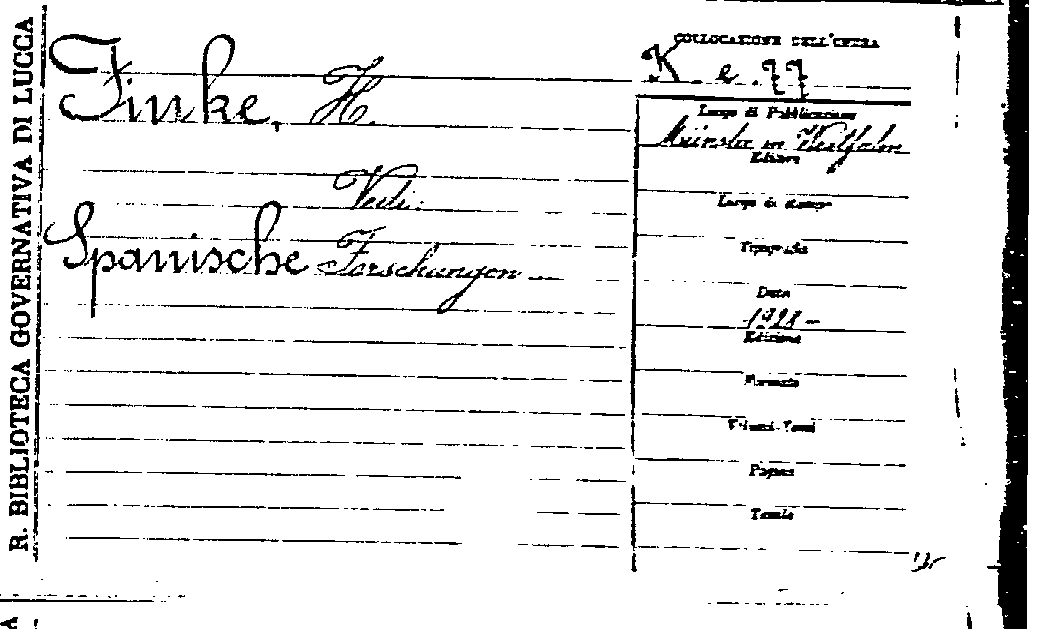 R. BIBLIOTECA GOVERNATIVA DI LUCCA
Finke, H.
Vedi:
Spanische Forschungen
COLLOCAZIONE DELL'OPERA
K. e. 77
Luogo di Pubblicazione
Münster in Westfalen
Editore
Luogo di stampa
Tipografia
Data
1928 -
Edizione
Formato
Volumi-Tomi
Pagine
Tavole
A